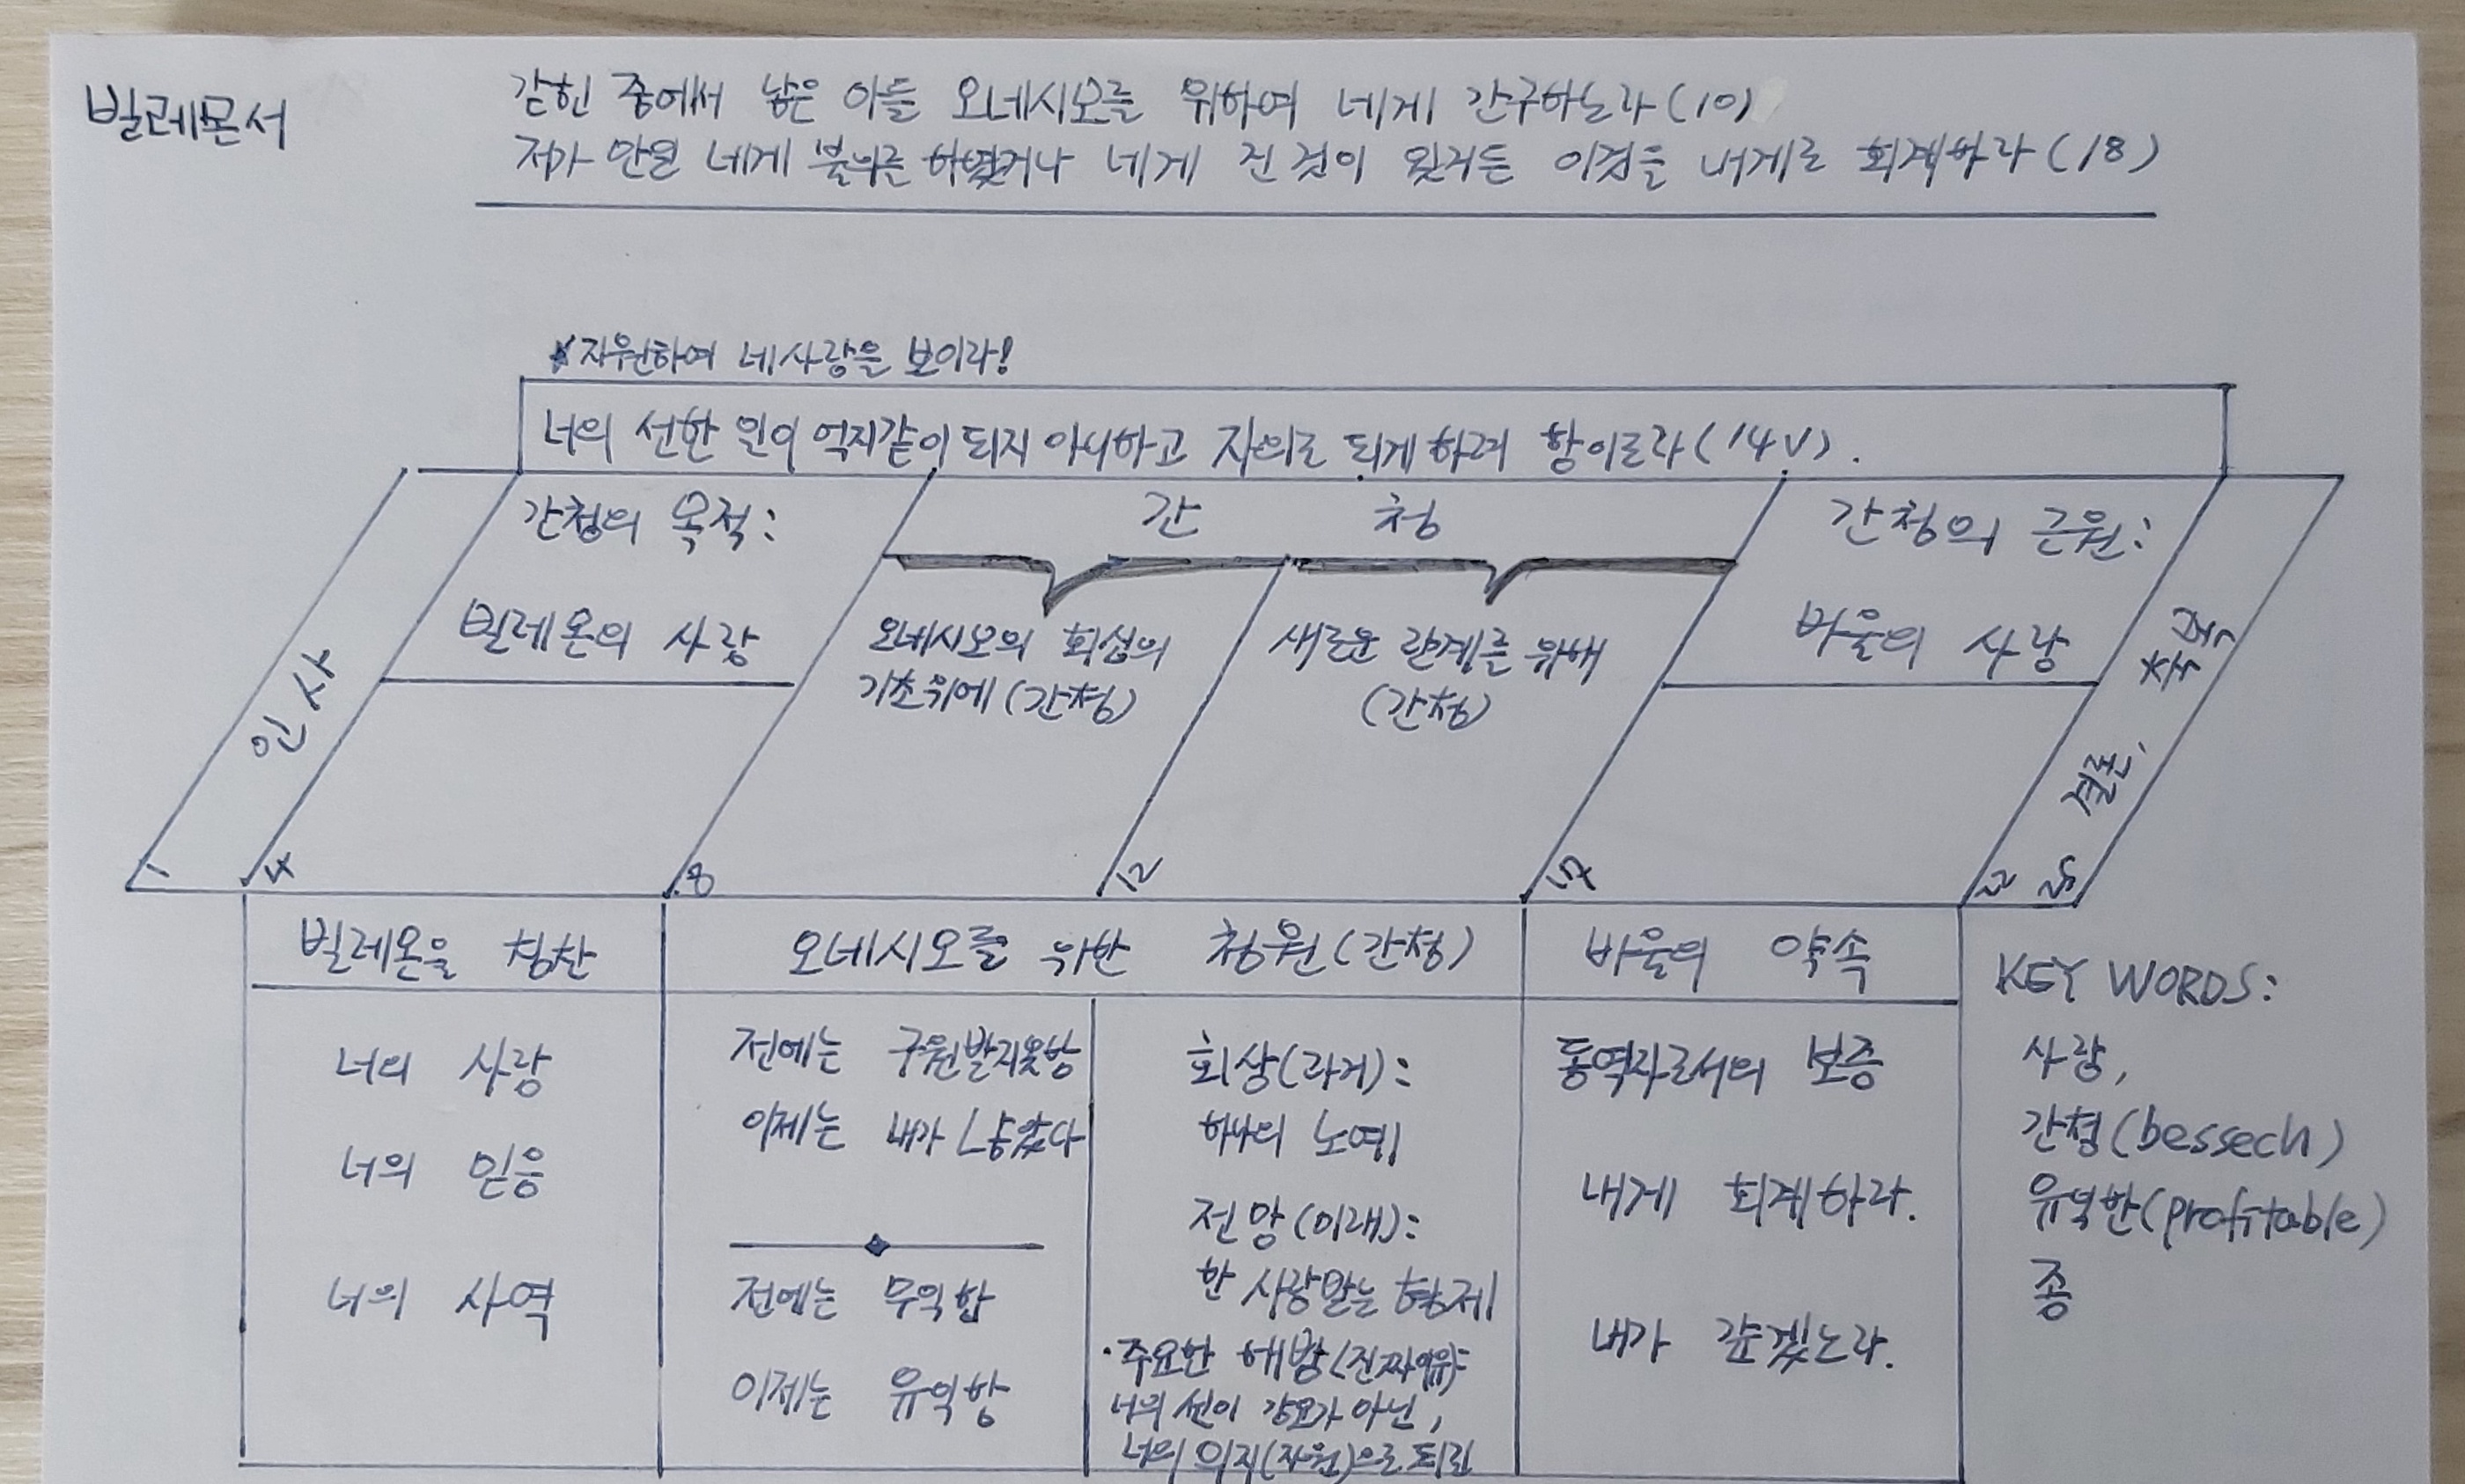 빌레몬서
갇힌 중에서 낳은 아들 오네시모를 위하여 네게 간구하노라(10)
저가 만일 네게 불의를 하였거나 네게 진 것이 있거든 이것을 내게로 회계하라(18)
*자원하여 네사랑을 보이라!
너의 선한 일이 억지같이 되지 아니하고 자의로 되게 하려 함이로라(14V).
인사
간청의 목적:
빌레몬의 사랑
간 청
오네시모의 회심의
기초위에(간청)
새로운 관계를 위해
(간청)
간청의 근원:
바울의 사랑
결론,
축복
1
4
8
12
22
25
빌레몬을 칭찬
너의 사랑
너의 믿음
너의 사역
오네시모를 위한 청원(간청)
전에는 구원받지못함
이제는 내가 낳았다
전에는 무익함
이제는 유익함
회상(과거):
하나의 노예
전망(미래):
한 사랑받는 형제
·주요한 해방(진짜이유):
너의 선이 강요가 아닌,
너의 의지(자원)으로 되린
바울의 약속
동역자로서의 보증
내게 회계하라.
내가 갚겠노라.
KEY WORDS:
사랑,
간청(bessech)
유익한(profitable)
종